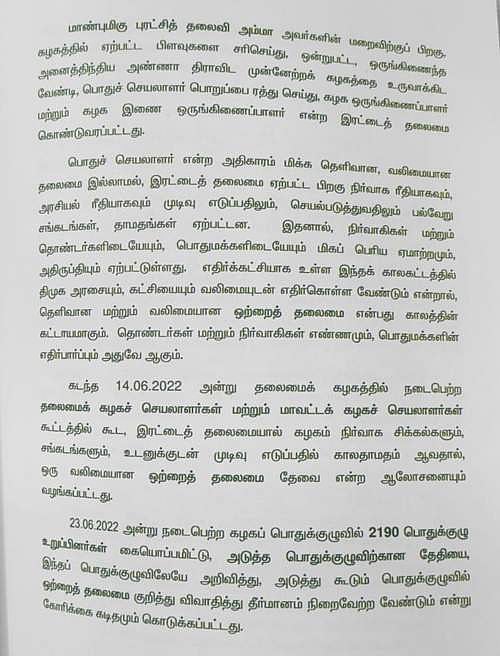 மாண்புமிகு புரட்சித் தலைவி அம்மா அவர்களின் மறைவிற்குப் பிறகு,
கழகத்தில் ஏற்பட்ட பிளவுகளை சரிசெய்து, ஒன்றுபட்ட, ஒருங்கிணைந்த
அனைத்திந்திய அண்ணா திராவிட முன்னேற்றக் கழகத்தை உருவாக்கிட
வேண்டி, பொதுச் செயலாளர் பொறுப்பை ரத்து செய்து, கழக ஒருங்கிணைப்பாளர்
மற்றும் கழக இணை ஒருங்கிணைப்பாளர் என்ற இரட்டைத் தலைமை
கொண்டுவரப்பட்டது.
பொதுச் செயலாளர் என்ற அதிகாரம் மிக்க தெளிவான, வலிமையான
தலைமை இல்லாமல், இரட்டைத் தலைமை ஏற்பட்ட பிறகு நிர்வாக ரீதியாகவும்,
அரசியல் ரீதியாகவும் முடிவு எடுப்பதிலும், செயல்படுத்துவதிலும் பல்வேறு
சங்கடங்கள், தாமதங்கள் ஏற்பட்டன. இதனால், நிர்வாகிகள் மற்றும்
தொண்டர்களிடையேயும், பொதுமக்களிடையேயும் மிகப் பெரிய ஏமாற்றமும்,
அதிருப்தியும் ஏற்பட்டுள்ளது. எதிர்க்கட்சியாக உள்ள இந்தக் காலகட்டத்தில்
திமுக அரசையும், கட்சியையும் வலிமையுடன் எதிர்கொள்ள வேண்டும் என்றால்,
தெளிவான மற்றும் வலிமையான ஒற்றைத் தலைமை என்பது காலத்தின்
கட்டாயமாகும். தொண்டர்கள் மற்றும் நிர்வாகிகள் எண்ணமும், பொதுமக்களின்
எதிர்பார்ப்பும் அதுவே ஆகும்.
கடந்த 14.06.2022 அன்று தலைமைக் கழகத்தில் நடைபெற்ற
தலைமைக் கழகச் செயலாளர்கள் மற்றும் மாவட்டக் கழகச் செயலாளர்கள்
கூட்டத்தில் கூட, இரட்டைத் தலைமையால் கழகம் நிர்வாக சிக்கல்களும்,
சங்கடங்களும், உடனுக்குடன் முடிவு எடுப்பதில் காலதாமதம் ஆவதால்,
ஒரு வலிமையான ஒற்றைத் தலைமை தேவை என்ற ஆலோசனையும்
வழங்கப்பட்டது.
23.06.2022 அன்று நடைபெற்ற கழகப் பொதுக்குழுவில் 2190 பொதுக்குழு
உறுப்பினர்கள் கையொப்பமிட்டு, அடுத்த பொதுக்குழுவிற்கான தேதியை,
இந்தப் பொதுக்குழுவிலேயே அறிவித்து, அடுத்து கூடும் பொதுக்குழுவில்
ஒற்றைத் தலைமை குறித்து விவாதித்து தீர்மானம் நிறைவேற்ற வேண்டும் என்று
கோரிக்கை கடிதமும் கொடுக்கப்பட்டது.